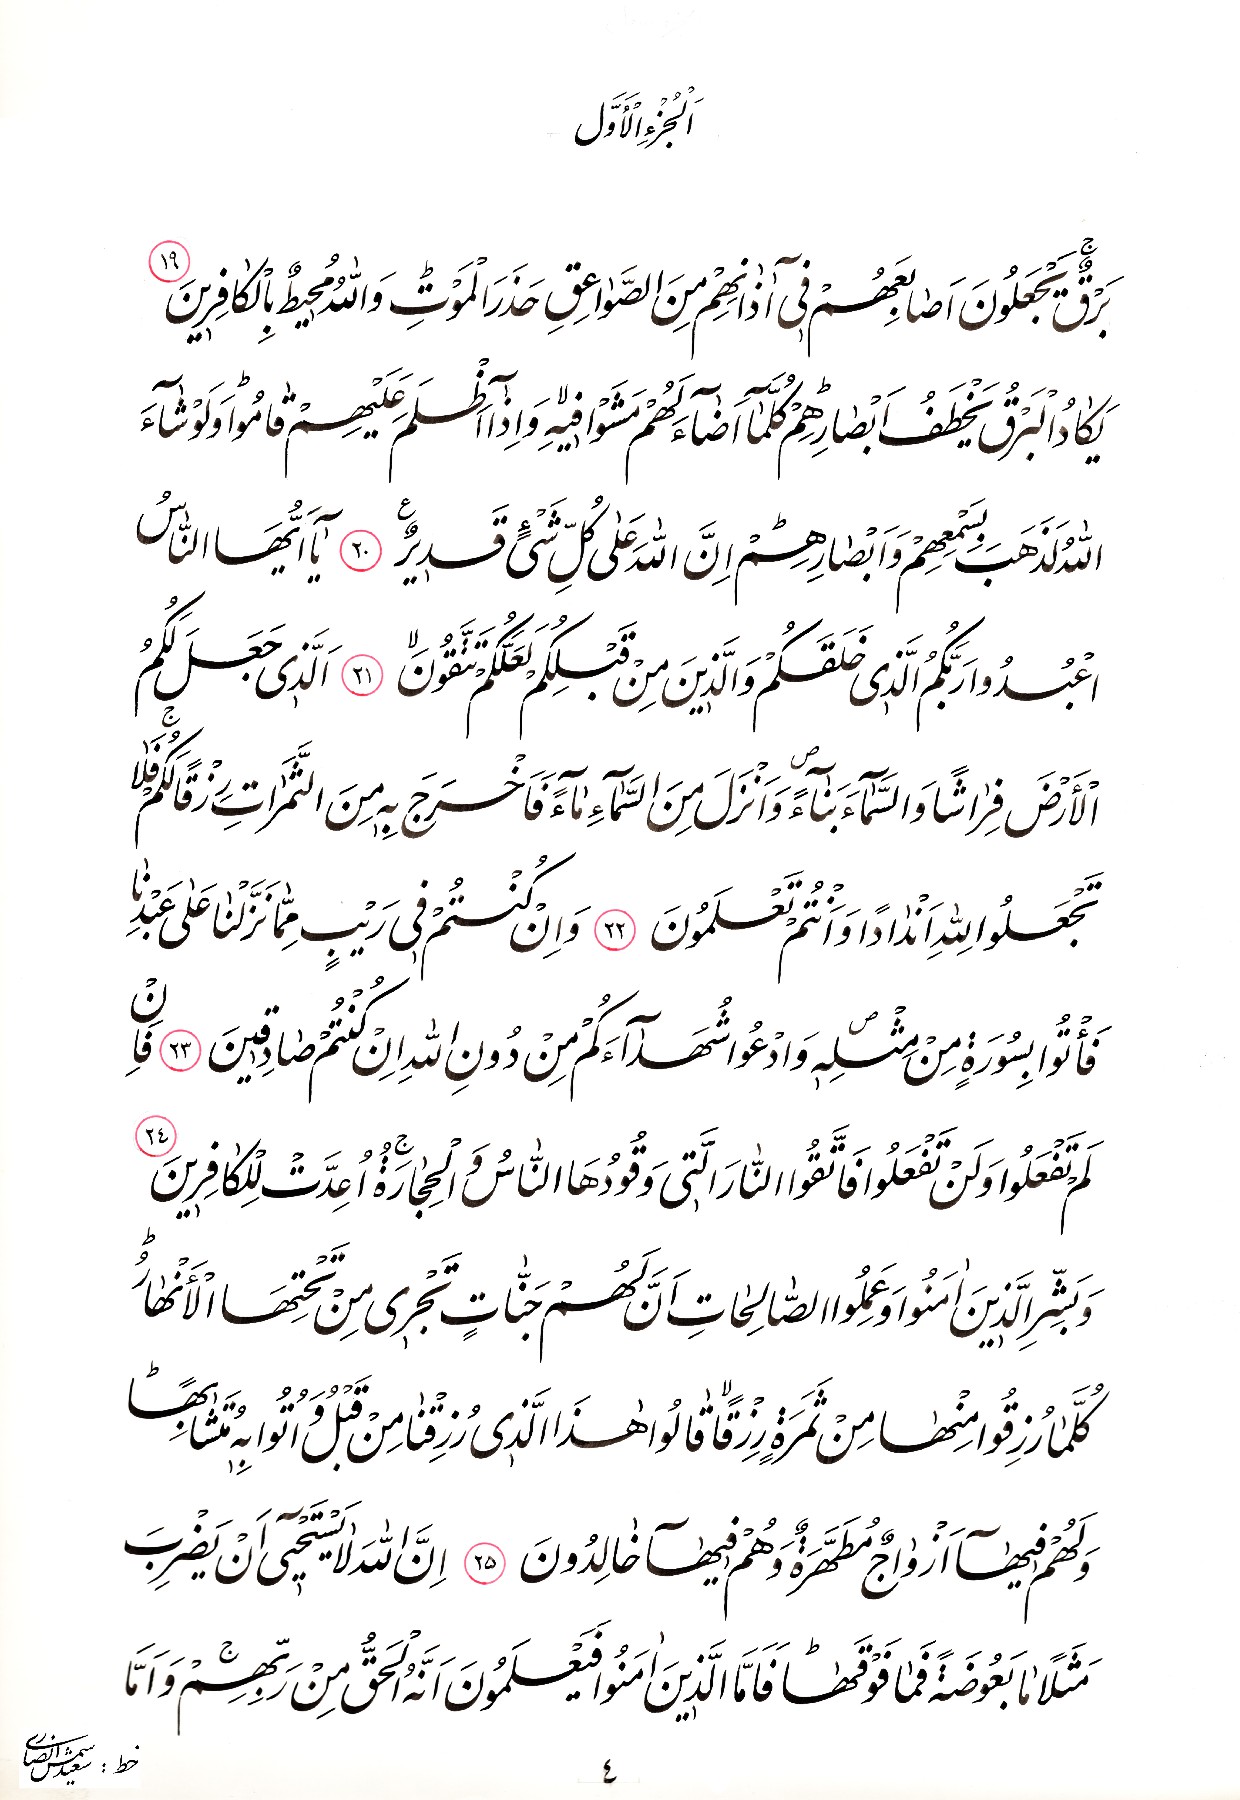 اَلْجُزْءُ الْأَوَّل
بَرْقٌۚ يَجْعَلُونَ اَصَابِعَهُمْ فِىٓ اٰذَانِهِمْ مِنَ الصَّوَاعِقِ حَذَرَ الْمَوْتِؕ وَاللّٰهُ مُحِيطٌ بِالْكَافِرِينَ ١٩
يَكَادُ الْبَرْقُ يَخْطَفُ اَبْصَارَهُمْؕ كُلَّمَآ اَضَآءَ لَهُمْ مَشَوْا فِيهِۙ وَاِذَآ اَظْلَمَ عَلَيْهِمْ قَامُواؕ وَلَوْ شَآءَ
اللّٰهُ لَذَهَبَ بِسَمْعِهِمْ وَاَبْصَارِهِمْؕ اِنَّ اللّٰهَ عَلٰى كُلِّ شَىْءٍ قَدِيرٌ ع ٢٠ يَآ اَيُّهَا النَّاسُ
اعْبُدُوا رَبَّكُمُ الَّذِى خَلَقَكُمْ وَالَّذِينَ مِنْ قَبْلِكُمْ لَعَلَّكُمْ تَتَّقُونَۙ ٢١ اَلَّذِى جَعَلَ لَكُمُ
الْأَرْضَ فِرَاشًا وَالسَّمَآءَ بِنَآءًص وَاَنْزَلَ مِنَ السَّمَآءِ مَآءً فَاَخْرَجَ بِهِ مِنَ الثَّمَرَاتِ رِزْقًا لَكُمْۚ فَلَا
تَجْعَلُوا لِلّٰهِ اَنْدَادًا وَاَنْتُمْ تَعْلَمُونَ ٢٢ وَاِنْ كُنْتُمْ فِى رَيْبٍ مِمَّا نَزَّلْنَا عَلٰى عَبْدِنَا
فَأْتُوا بِسُورَةٍ مِنْ مِثْلِهِص وَادْعُوا شُهَدَآءَكُمْ مِنْ دُونِ اللّٰهِ اِنْ كُنْتُمْ صَادِقِينَ ٢٣ فَاِنْ
لَمْ تَفْعَلُوا وَلَنْ تَفْعَلُوا فَاتَّقُوا النَّارَ الَّتِى وَقُودُهَا النَّاسُ وَالْحِجَارَةُۚ اُعِدَّتْ لِلْكَافِرِينَ ٢٤
وَبَشِّرِ الَّذِينَ اٰمَنُوا وَعَمِلُوا الصَّالِحَاتِ اَنَّ لَهُمْ جَنَّاتٍ تَجْرِى مِنْ تَحْتِهَا الْأَنْهَارُؕ
كُلَّمَا رُزِقُوا مِنْهَا مِنْ ثَمَرَةٍ رِزْقًاۙ قَالُوا هٰذَا الَّذِى رُزِقْنَا مِنْ قَبْلُ وَاُتُوا بِهِ مُتَشَابِهًاؕ
وَلَهُمْ فِيهَآ اَزْوَاجٌ مُطَهَّرَةٌ وَهُمْ فِيهَا خَالِدُونَ ٢٥ اِنَّ اللّٰهَ لَا يَسْتَحْيِىٓ اَنْ يَضْرِبَ
مَثَلًا مَا بَعُوضَةً فَمَا فَوْقَهَاؕ فَاَمَّا الَّذِينَ اٰمَنُوا فَيَعْلَمُونَ اَنَّهُ الْحَقُّ مِنْ رَبِّهِمْۚ وَاَمَّا
٤
خط : سعید شمس انصاری